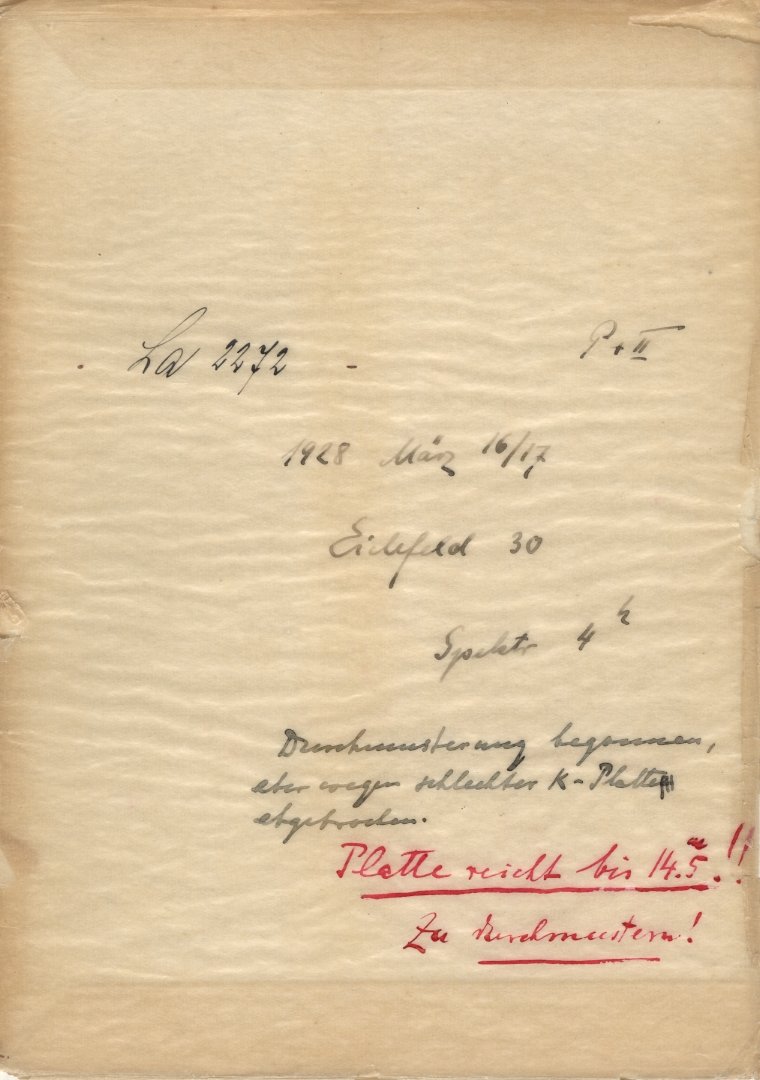 La 2272 - P + II
1928 März 16/17
Eichfeld 30
Spektr 4 h
Durchmusterung begonnen,
aber wegen schlechter K-Platte
abgebrochen.
Platte reicht bis 14.m5!!
Zu durchmustern!